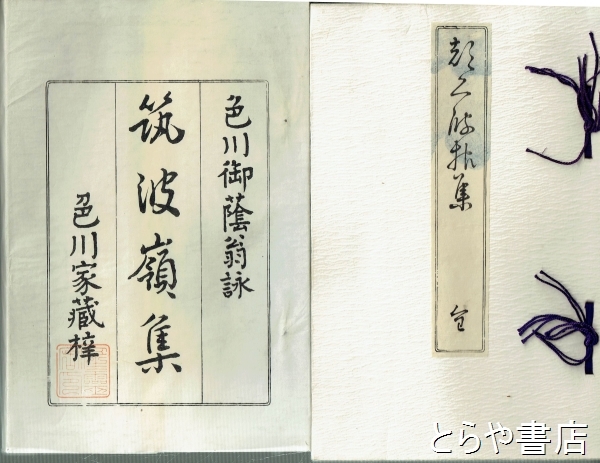 色川御蔭翁詠
筑波嶺集
色川家藏梓
集 全
とらや書店